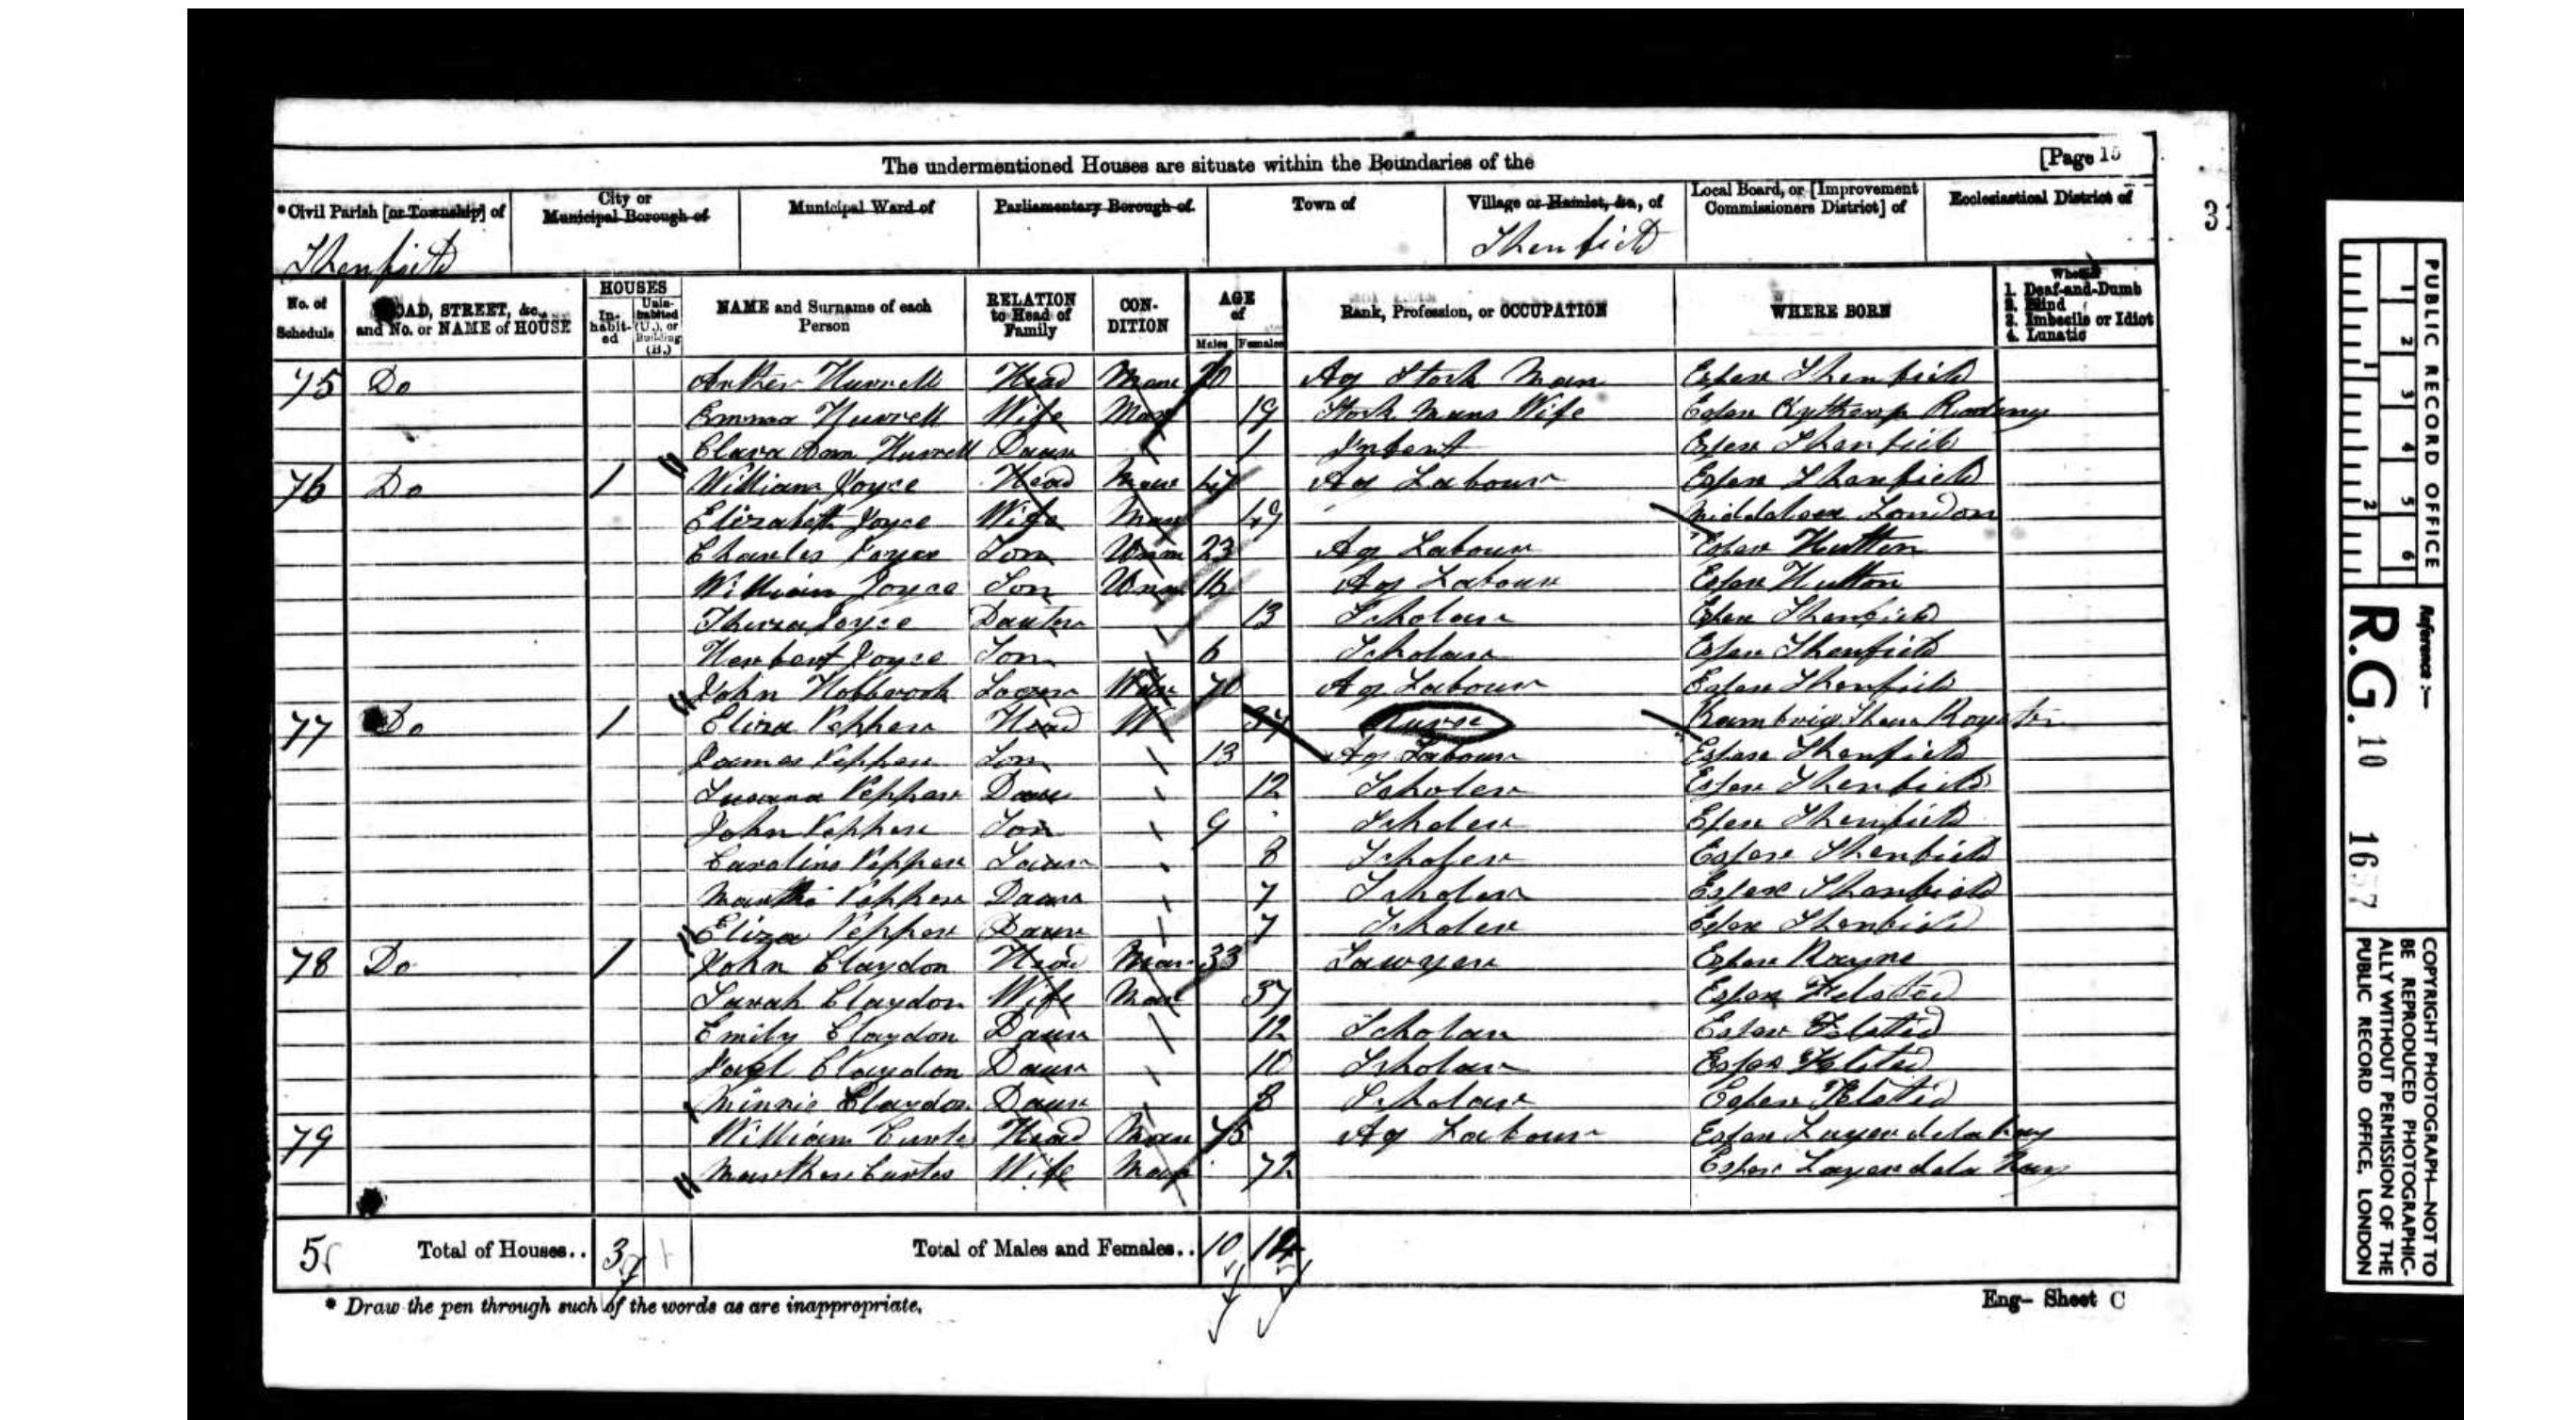 The undermentioned Houses are situate within the Boundaries of the [Page 15
*Civil Parish [or Township] of City or Municipal Borough of Municipal Ward of Parliamentary Borough of Town of Village or Hamlet, &c, of Local Board, or [Improvement Commissioners District] of Ecclesiastical District of
Shenfield Shenfield
31
No. of Schedule ROAD, STREET, &c., and No. or NAME of HOUSE HOUSES Inhabited Uninhabited (U.), or Building (B.) NAME and Surname of each Person RELATION to Head of Family CONDITION AGE of Males Females Rank, Profession, or OCCUPATION WHERE BORN Whether 1. Deaf-and-Dumb 2. Blind 3. Imbecile or Idiot 4. Lunatic
75 Do Hurrell Head Mar Ag Stock Man Essex Shenfield
Emma Hurrell Wife Mar 19 Stock Mans Wife Essex
Clara Ann Hurrell Daur 1 Infant Essex Shenfield
76 Do 1 William Joyce Head Mar 47 Ag Labour Essex Shenfield
Elizabeth Joyce Wife Mar 49 Middelsex London
Charles Joyce Son Unm 23 Ag Labour Essex Hutton
William Joyce Son Unm 16 Ag Labour Essex Hutton
Joyce 13 Scholar Essex Shenfield
Herbert Joyce Son 6 Scholar Essex Shenfield
John Holbrook 70 Ag Labour Essex Shenfield
77 Do 1 Eliza Pepper Head W 37 Nurse
James Pepper Son 13 Ag Labour Essex Shenfield
Susana Pepper Daur 12 Scholer Essex Shenfield
John Pepper Son 9 Scholer Essex Shenfield
Caroline Pepper Daur 8 Scholer Essex Shenfield
Martha Pepper Daur 7 Scholer Essex Shenfield
Eliza Pepper Daur 7 Scholer Essex Shenfield
78 Do 1 John Claydon Head Mar 33 Lawyer Essex Rayne
Sarah Claydon Wife Mar 37 Essex Felsted
Emily Claydon Daur 12 Scholar Essex Felsted
Claydon Daur 10 Scholar Essex Felsted
Minnie Claydon Daur 8 Scholar Essex Felsted
79 William Head Mar 75 Ag Labour Essex Layer dela
Wife Mar 72 Essex Layer dela
5 Total of Houses.. 3 Total of Males and Females.. 10 14
* Draw the pen through such of the words as are inappropriate.
Eng- Sheet C
PUBLIC RECORD OFFICE
1 2 3 4 5 6
1 2
Reference :—
R.G. 10 1677
COPYRIGHT PHOTOGRAPH—NOT TO BE REPRODUCED PHOTOGRAPHICALLY WITHOUT PERMISSION OF THE PUBLIC RECORD OFFICE, LONDON